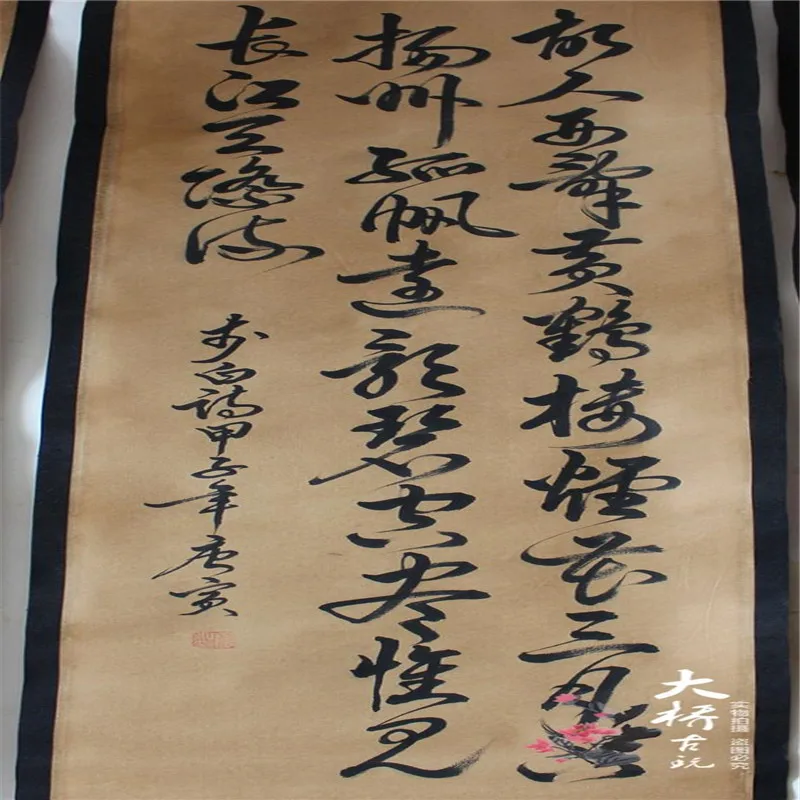 故人西辭黃鶴樓煙花三月下
揚州孤帆遠影碧空盡惟見
長江天際流
李白詩甲子年唐寅
大桥古玩
实物拍摄 盗图必究